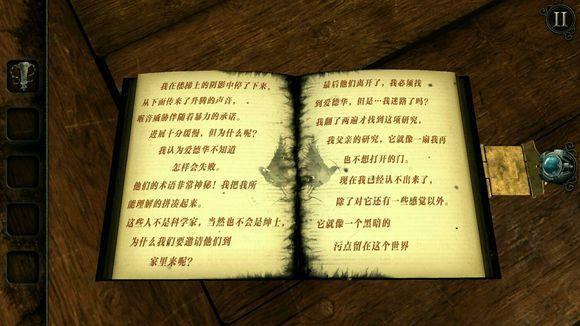 我在楼梯上的阴影中停了下来,
从下面传来了升腾的声音,
喉音威胁伴随着暴力的承诺。
进展十分缓慢,但为什么呢?
我认为爱德华不知道
怎样会失败。
他们的术语非常神秘!我把我所
能理解的拼凑起来。
这些人不是科学家,当然也不会是绅士,
为什么我们要邀请他们到
家里来呢?
最后他们离开了,我必须找
到爱德华,但是…我迷路了吗?
我翻了两遍才找到这项研究,
我父亲的研究,它就像一扇我再
也不想打开的门。
现在我已经认不出来了,
除了对它还有一些感觉以外。
它就像一个黑暗的
污点留在这个世界